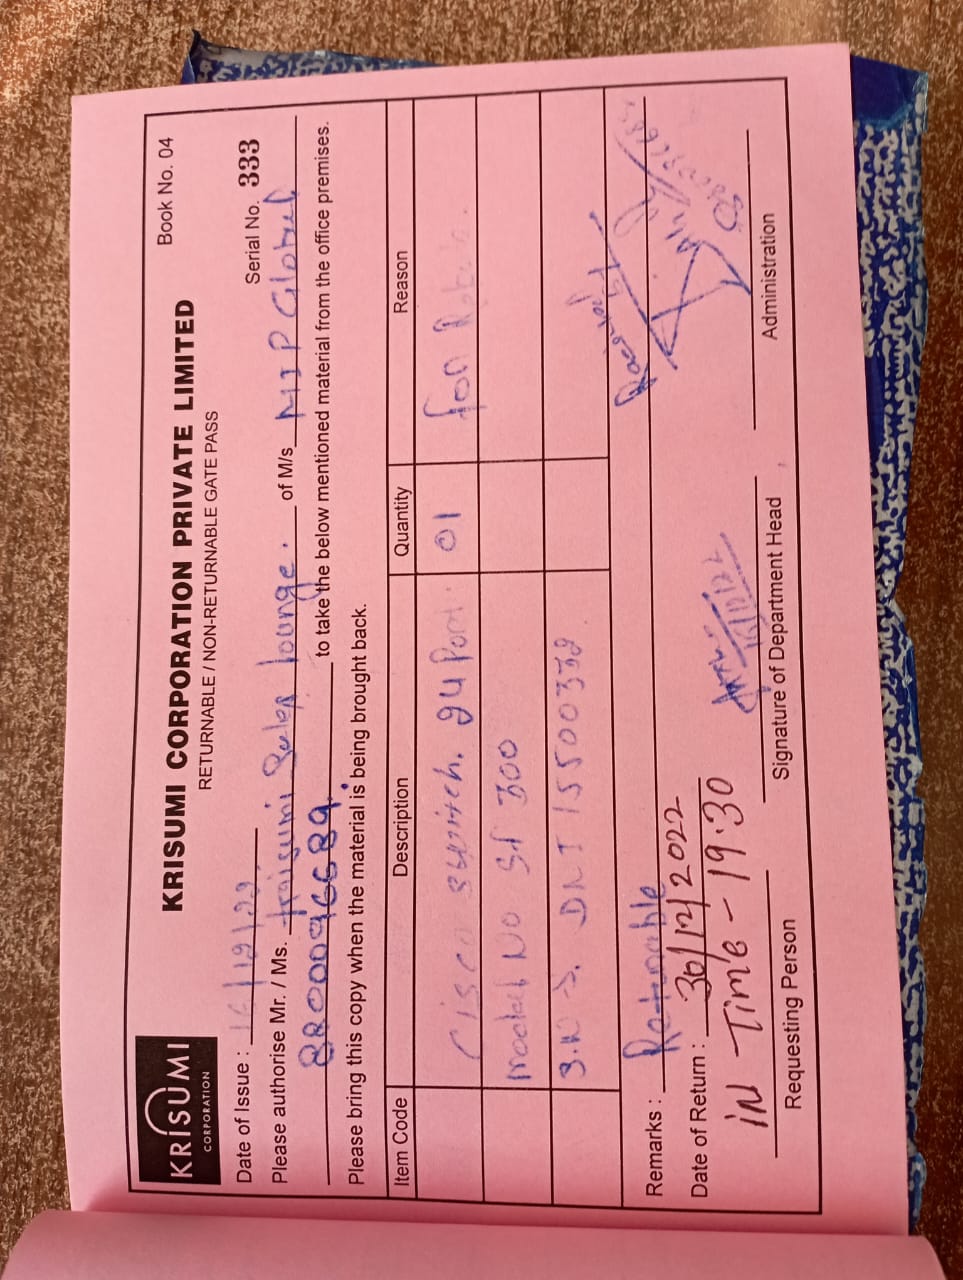 KRISUMI
CORPORATION
KRISUMI CORPORATION PRIVATE LIMITED
RETURNABLE / NON-RETURNABLE GATE PASS
Book No. 04
Serial No. 333
Date of Issue :
Please authorise Mr. / Ms. Lounge. of M/s MIP Global
8800096689. to take the below mentioned material from the office premises.
Please bring this copy when the material is being brought back.
Item Code Description Quantity Reason
Cisco switch. 24 Port. 01 for
model No SF 300
S.N → DNI
Remarks : Retunable
Date of Return : 30/12/2022
IN Time - 19:30
Requesting Person
Signature of Department Head
Administration